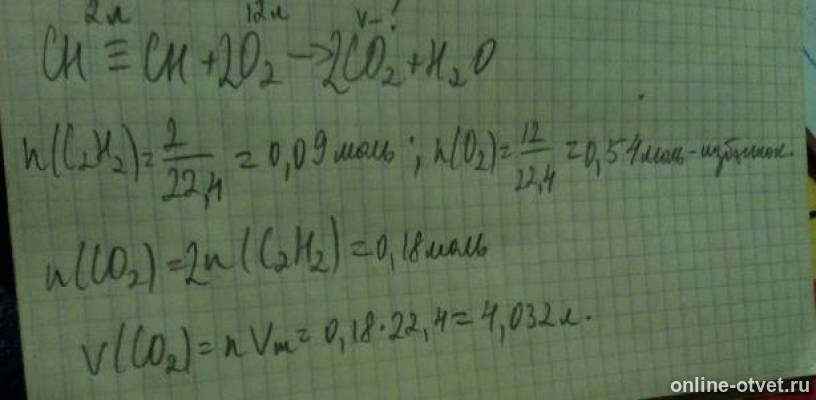 2л 12л V-?
CH ≡ CH + 2O₂ → 2CO₂ + H₂O
n(C₂H₂) = 2/22,4 = 0,09 моль; n(O₂) = 12/22,4 = 0,54 моль - избыток.
n(CO₂) = 2n(C₂H₂) = 0,18 моль
V(CO₂) = n Vm = 0,18·22,4 = 4,032 л.
online-otvet.ru